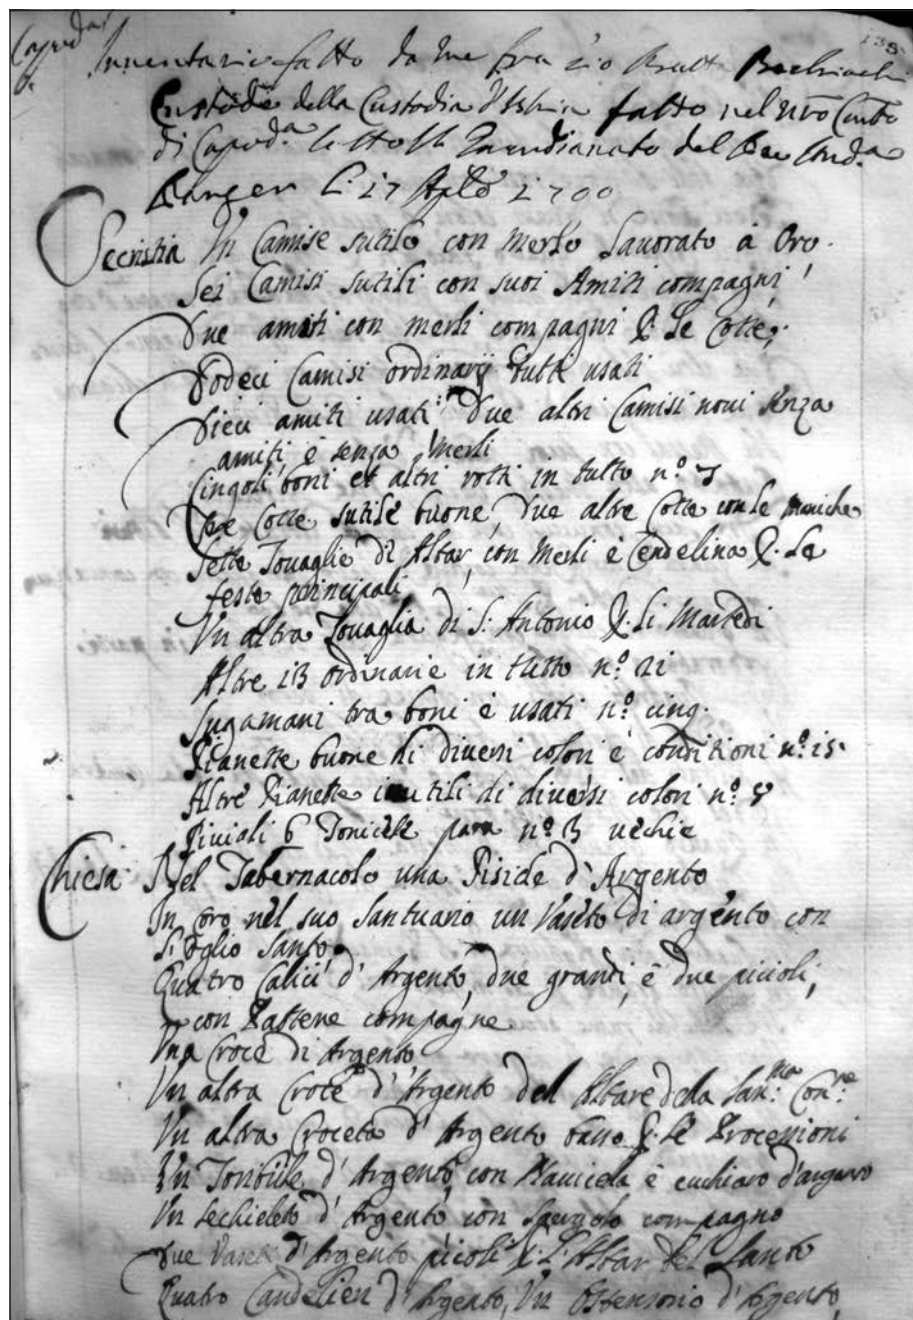 Capod.a
135
Inventario fatto da me fra
Custode della Custodia d'Istria fatto nel
di Capod.a sotto il Guardianato del And.a
li 27 1700
Secristia Un Camise sutile con merlo lavorato à oro.
Sei Camisi sutili con suoi Amiti compagni
Due amiti con merli compagni p. le Cotte;
Dodeci Camisi ordinarij tutti usati
Dieci amiti usati Due altri Camisi novi senza
amiti è senza Merli
Cingoli boni et altri rotti in tutto n.º 7
Tre Cotte sutile buone, due altre Cotte con le maniche
Sette Tovaglie di Altar con Merli è Cendelina p. le
feste principali
Un altra Tovaglia di S. Antonio p. li Martedi
Altre 13 ordinarie in tutto n.º 21
Sugamani tra boni è usati n.º cinq.
Pianette buone di diversi colori è conditioni n.º 15
Altre Pianette inutili di diversi colori n.º 8
Piviali 6 Tonicele para n.º 3 vechie
Chiesa Nel Tabernacolo una Piside d'Argento
In Coro nel suo Santuario un Vaseto di argento con
l'oglio Santo
Quatro Calici d'Argento, due grandi, è due picioli,
con Pattene compagne
Una Croce di Argento
Un altra Croce d'Argento del Altare dela San.ma Con.ne
Un altra Croceta d'Argento p. le Processioni
Un Toribile d'Argento con Navicela è cuchiaro d'argento
Un sechieleto d'Argento con compagno
Due Vaseti d'Argento picoli p. l'Altar del Santo
Quatro Candelieri d'Argento, Un Ostensorio d'Argento,